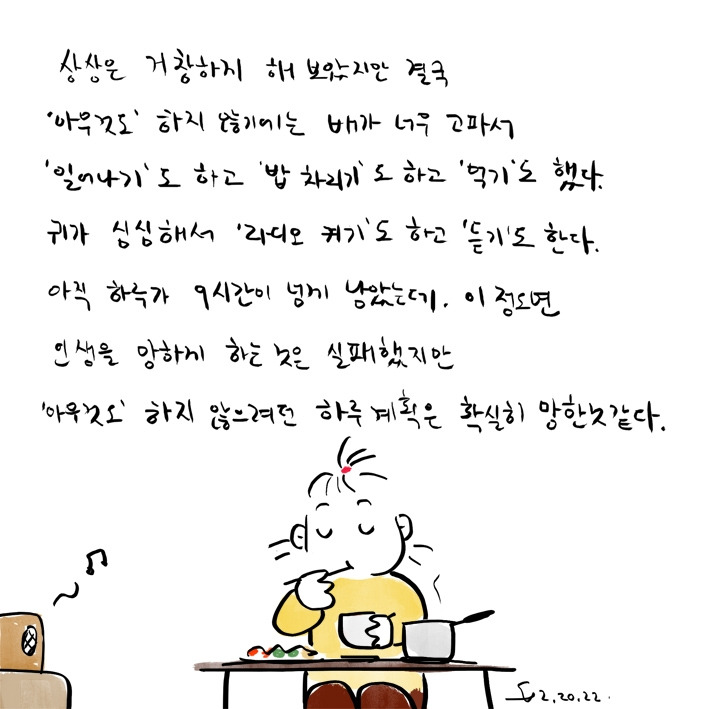 상상은 거창하게 해 보았지만 결국
'아무것도' 하지 않기에는 배가 너무 고파서
'일어나기'도 하고 '밥 차리기'도 하고 '먹기'도 했다.
귀가 심심해서 '라디오 켜기'도 하고 '듣기'도 한다.
아직 하루가 9시간이 넘게 남았는데. 이 정도면
인생을 망하게 하는 것은 실패했지만
'아무것도' 하지 않으려던 하루 계획은 확실히 망한 것 같다.
2.20.22.